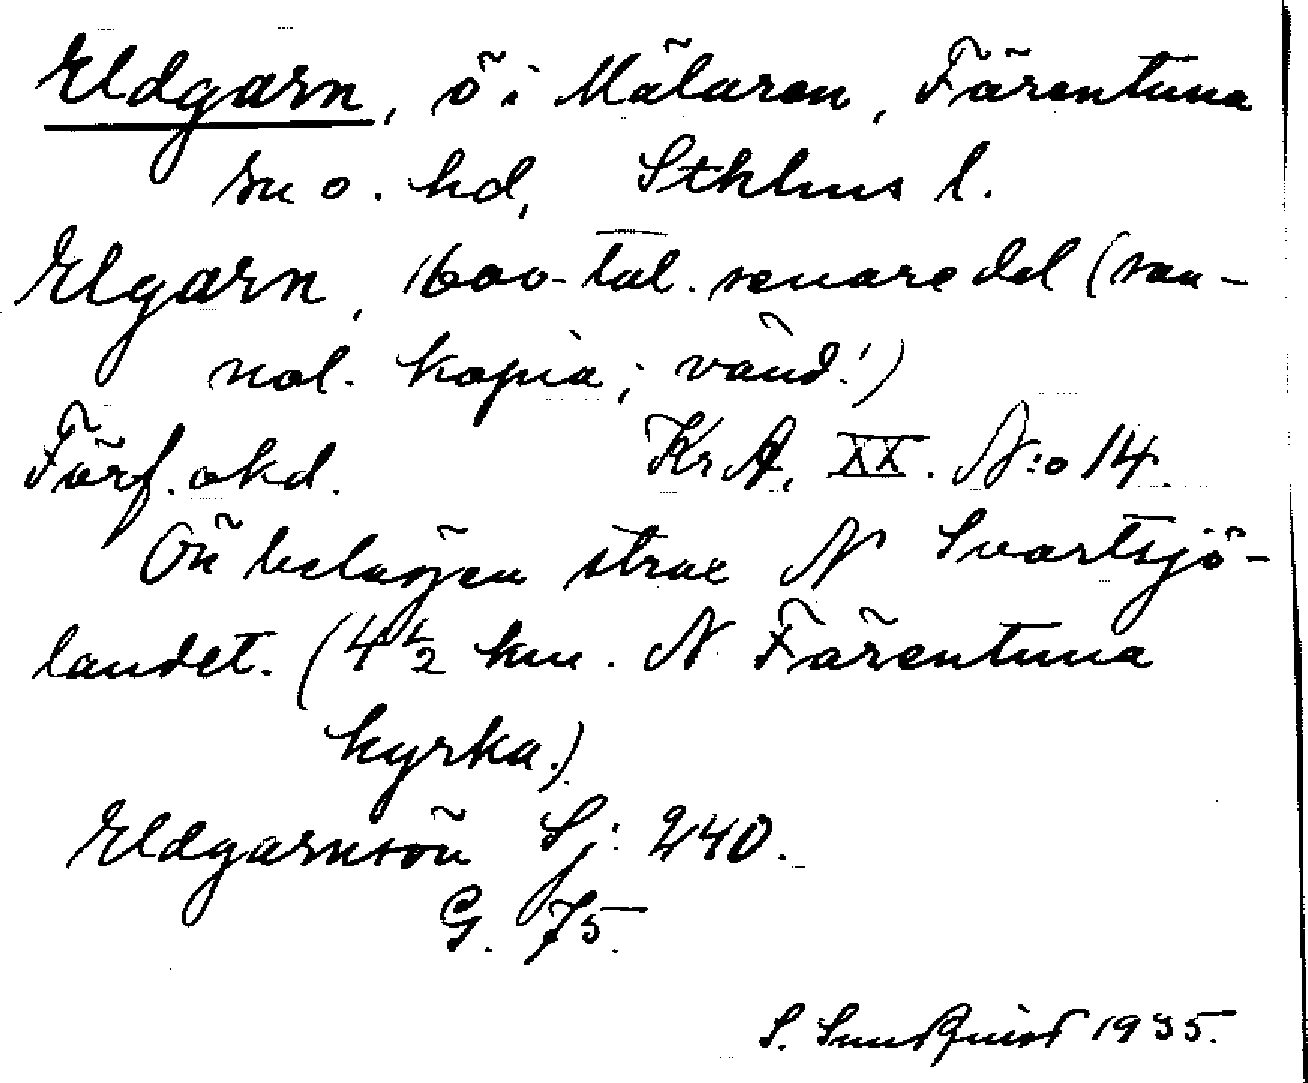 Eldgarn, ö i Mälaren, Färentuna
sn o. hd, Sthlms l.
Elgarn, 1600-tal. senare del (san-
nol. kopia; vänd!)
Förf. okd. KrA, XX. N:o 14.
Ön belägen strax N Svartsjö-
landet. (4 1/2 km. N Färentuna
kyrka.)
Eldgarnsön Sj: 240.
G. 75.
S. Sundquist 1935.